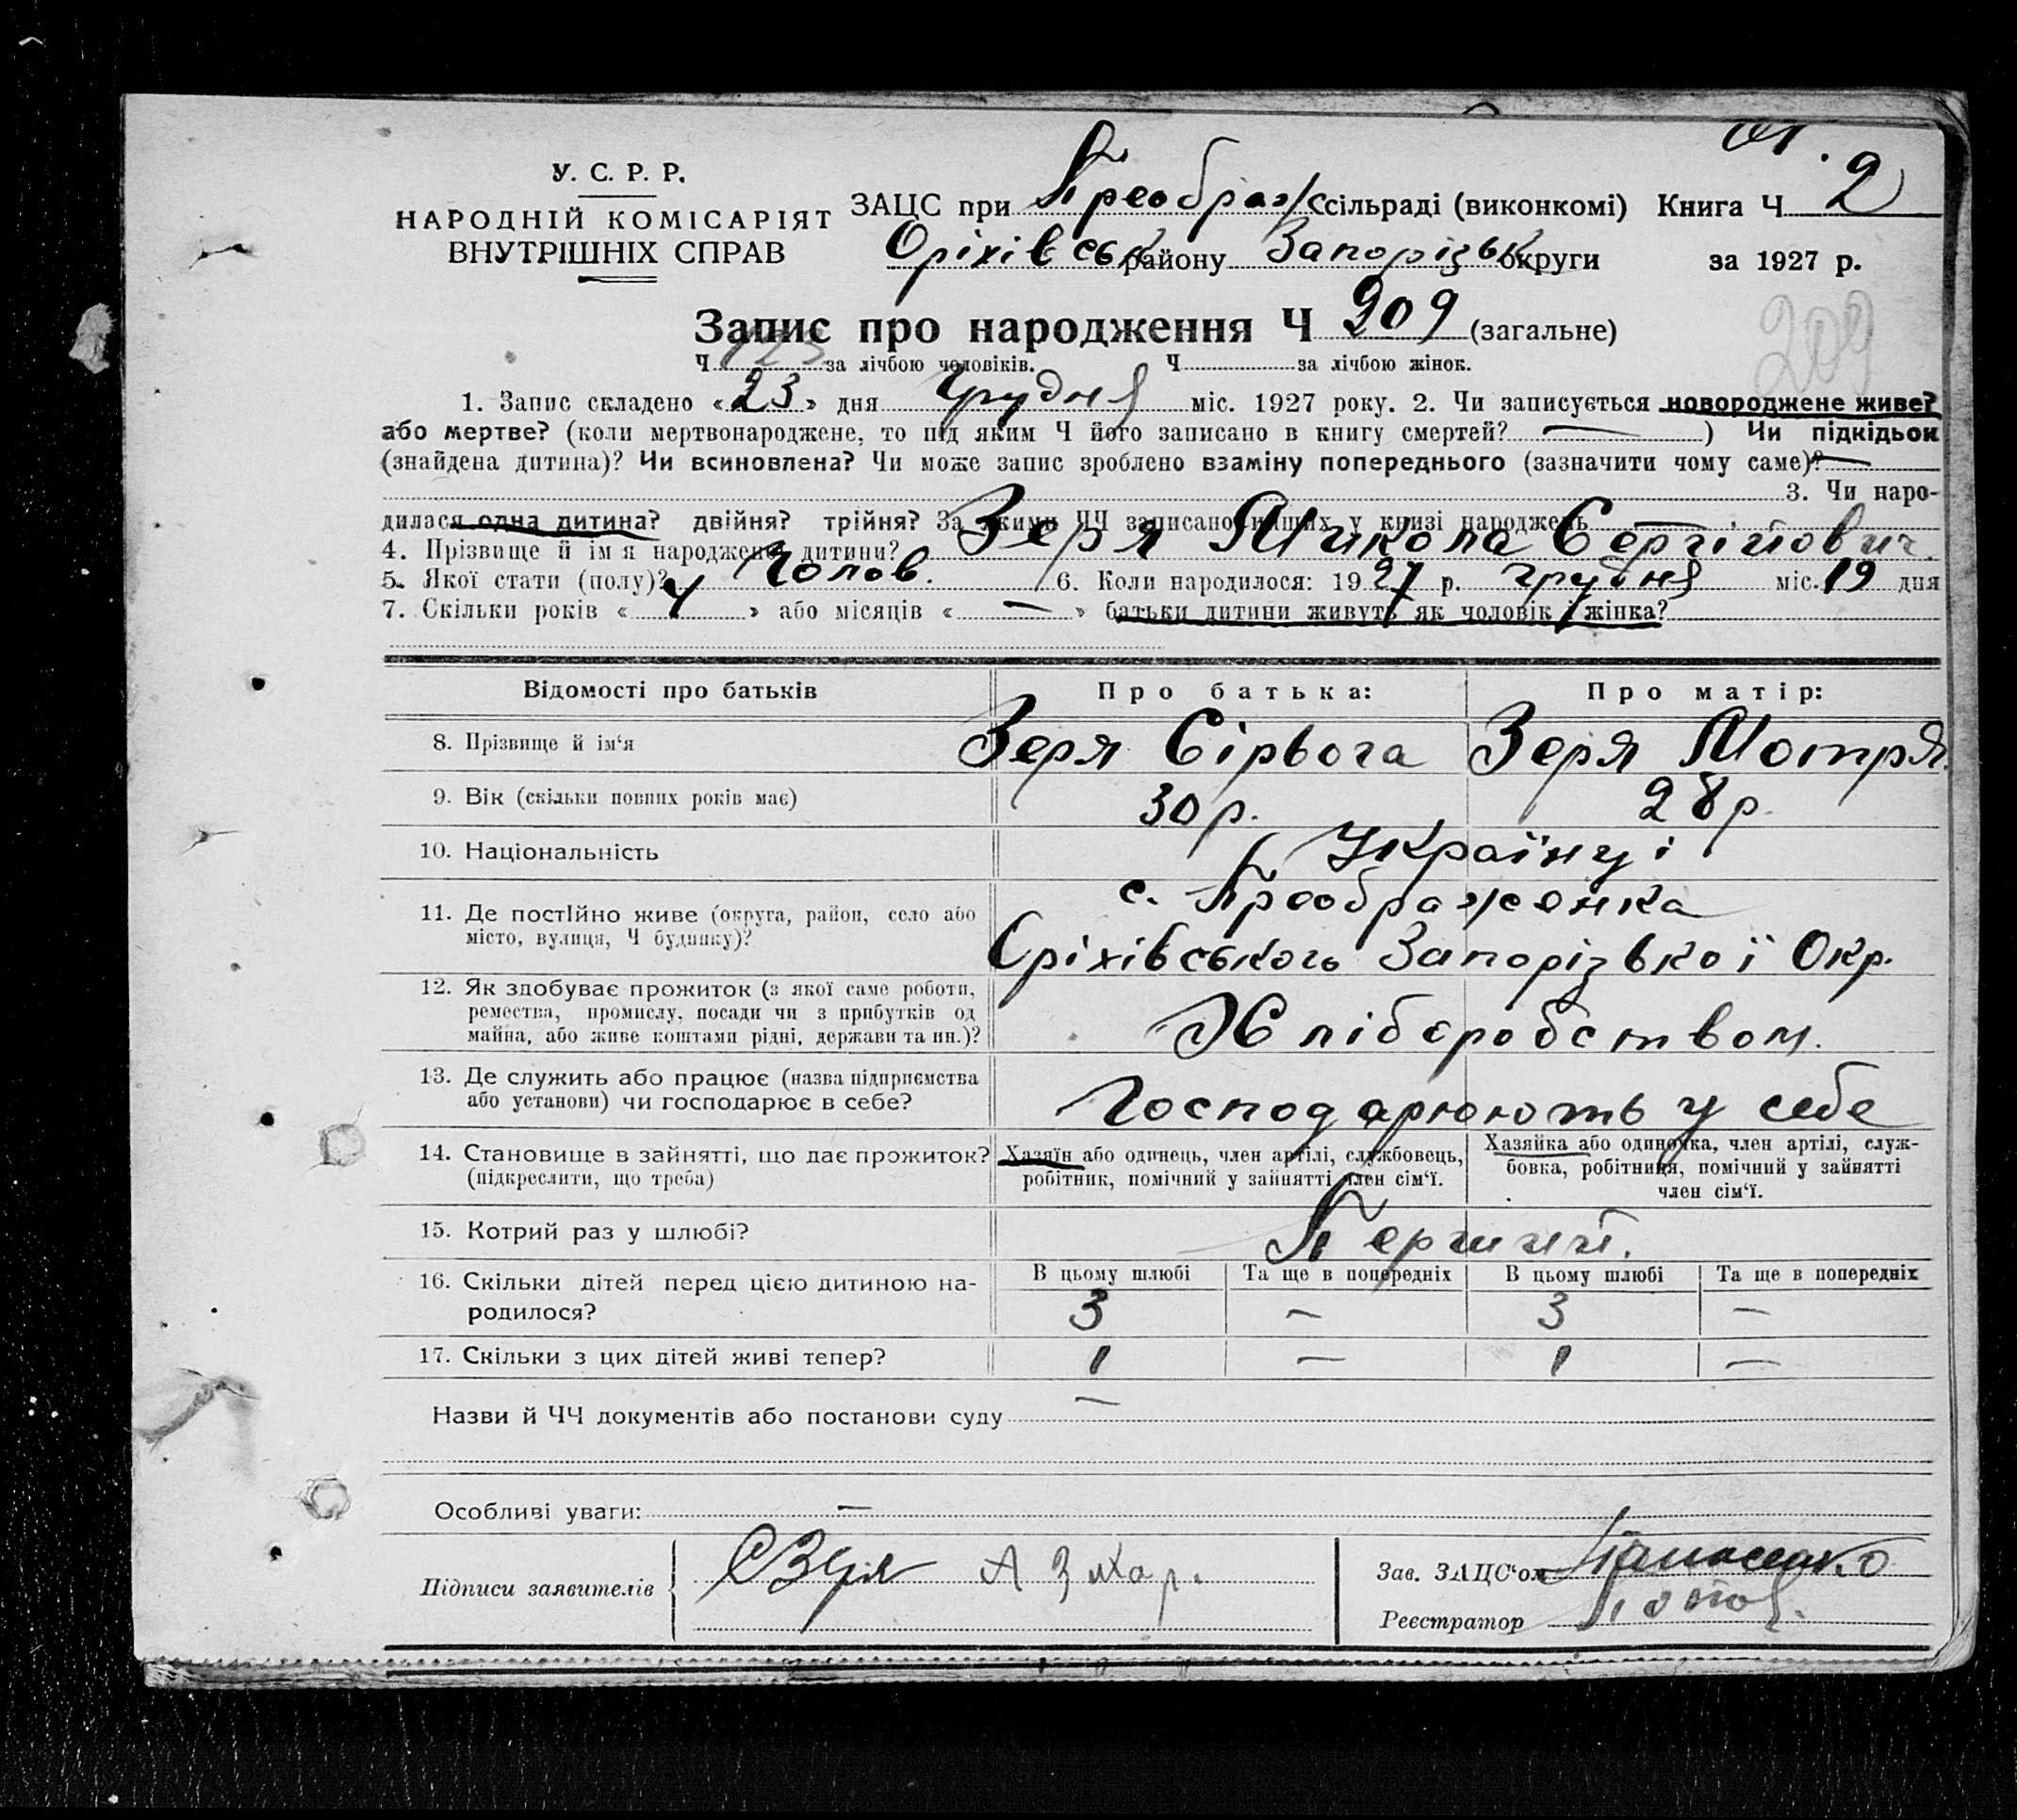 ст. 2
У. С. Р. Р.
НАРОДНІЙ КОМІСАРІЯТ
ВНУТРІШНІХ СПРАВ
ЗАЦС при Преображс сільраді (виконкомі) Книга Ч 2
Оріхівськ району Запорізьк округи за 1927 р.
Запис про народження Ч 209 (загальне)
209
Ч 123 за лічбою чоловіків. Ч за лічбою жінок.
1. Запис складено «23» дня Грудня міс. 1927 року. 2. Чи записується новороджене живе?
або мертве? (коли мертвонароджене, то під яким Ч його записано в книгу смертей? —) Чи підкідьок
(знайдена дитина)? Чи всиновлена? Чи може запис зроблено взаміну попереднього (зазначити чому саме)? —
3. Чи наро-
дилася одна дитина? двійня? трійня? За якими ЧЧ записано инших у книзі народжень —
4. Прізвище й ім'я народженої дитини? Зеря Микола Сергійович.
5. Якої стати (полу)? Чолов. 6. Коли народилося: 1927 р. грудня міс. 19 дня
7. Скільки років « 4 » або місяців « — » батьки дитини живуть як чоловік і жінка?
Відомості про батьків Про батька: Про матір:
8. Прізвище й ім'я Зеря Сірьога Зеря Мотря.
9. Вік (скільки повних років має) 30 р. 28 р.
10. Національність Українці
11. Де постійно живе (округа, район, село або
місто, вулиця, Ч будинку)?
с. Преображенка
Оріхівського Запорізької Окр.
12. Як здобуває прожиток (з якої саме роботи,
ремества, промислу, посади чи з прибутків од
майна, або живе коштами рідні, держави та ин.)?
Хліборобством.
13. Де служить або працює (назва підприємства
або установи) чи господарює в себе?
Господарюють у себе
14. Становище в зайнятті, що дає прожиток?
(підкреслити, що треба)
Хазяїн або одинець, член артілі, службовець,
робітник, помічний у зайнятті член сім'ї.
Хазяйка або одиночка, член артілі, служ-
бовка, робітниця, помічний у зайнятті
член сім'ї.
15. Котрий раз у шлюбі? Перший.
16. Скільки дітей перед цією дитиною на-
родилося?
В цьому шлюбі Та ще в попередніх В цьому шлюбі Та ще в попередніх
3 — 3 —
17. Скільки з цих дітей живі тепер? 1 — 1 —
Назви й ЧЧ документів або постанови суду —
Особливі уваги: —
Підписи заявителів СЗеря
Зав. ЗАЦС'ом
Реєстратор